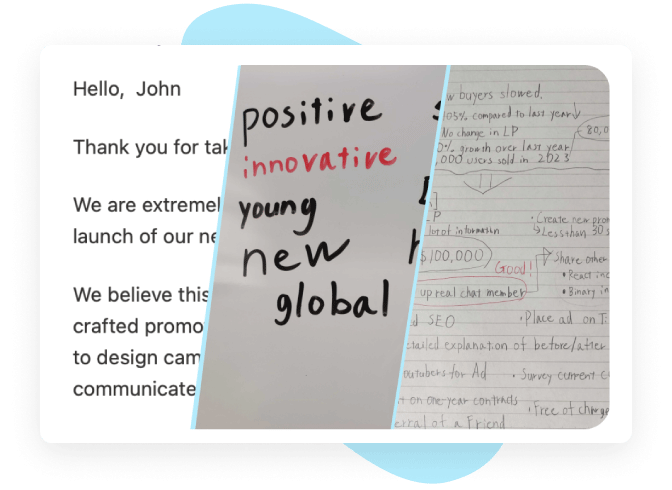 Hello, John
Thank you for tak
We are extremel
launch of our ne
We believe this
crafted promo
to design cam
communicate
positive
innovative
young
new
global
w buyers slowed.
05% compared to last year
No change in LP
0% growth over last year
,000 users sold in 2023
80,0
P
of information
$100,000
Good!
up real chat member
d SEO
etailed explanation of before/after
outubers for Ad
on one year contracts
erral of a Friend
· Create new pro
Less than 30 s
Share other
• React inc
• Binary in
· Place ad on
· Survey current c
· Free of charge